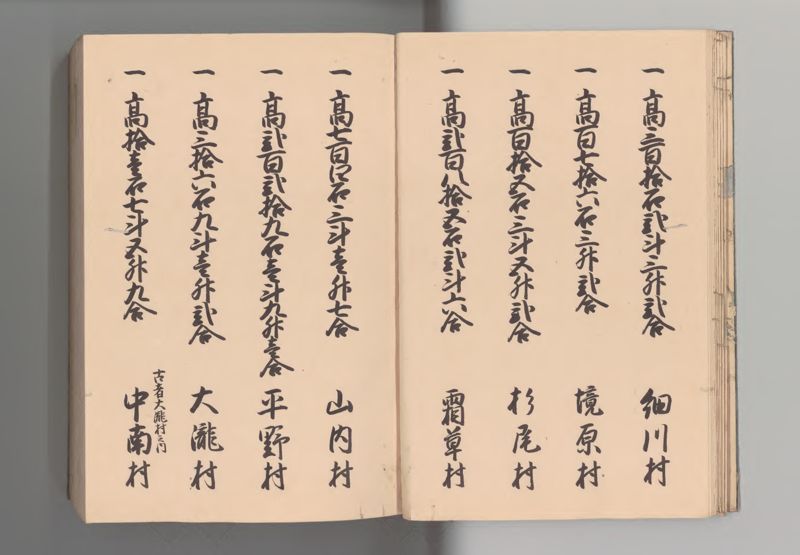 一 高三百拾石弐斗三升弐合 細川村
一 高百七拾六石三升弐合 境原村
一 高百拾五石三斗五升弐合 杉尾村
一 高弐百八拾五石弐斗六合 霜草村
一 高七百四石三斗壱升七合 山内村
一 高弐百弐拾九石壱斗九升壱合 平野村
一 高三拾六石九斗壱升弐合 大瀧村
古者大瀧村之内
一 高拾壱石七斗五升九合 中南村